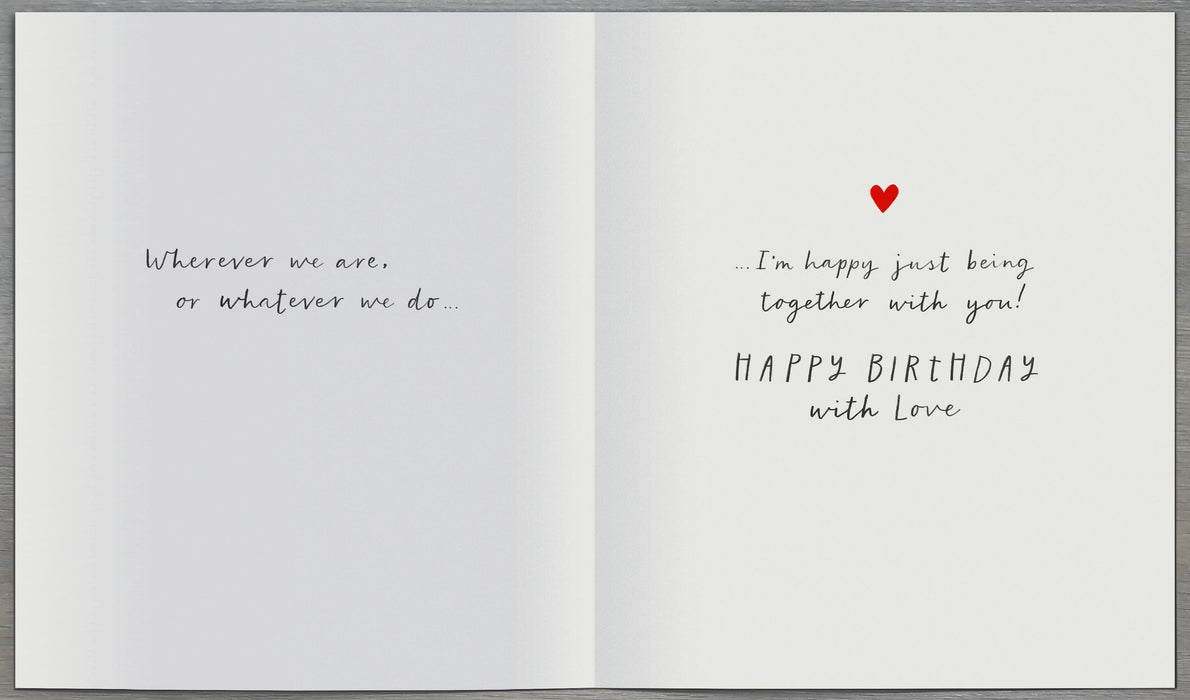 Wherever we are,
or whatever we do...
...I'm happy just being
together with you!
HAPPY BIRtHDAY
with Love